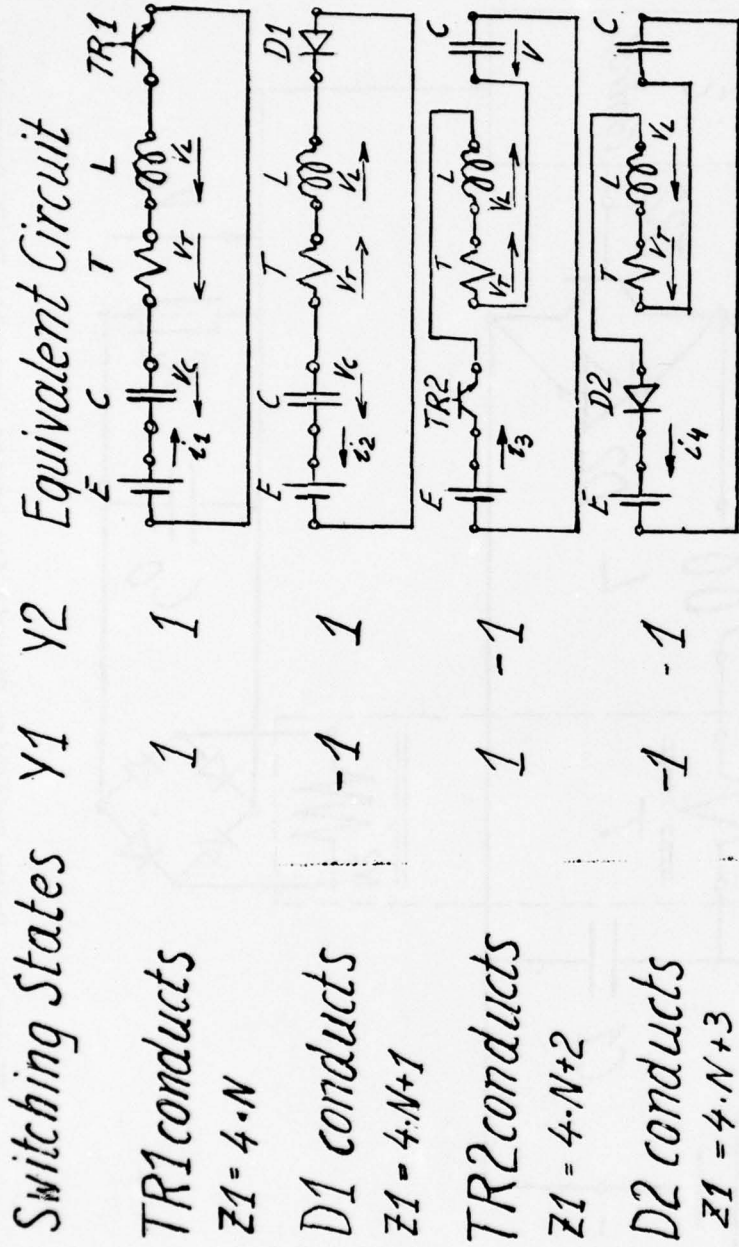 Switching States Y1 Y2 Equivalent Circuit
TR1 conducts 1 1
Z1 = 4·N
E C T L TR1
i1 Vc VT VL
D1 conducts -1 1
Z1 = 4·N+1
E C T L D1
i2 Vc VT VL
TR2 conducts 1 -1
Z1 = 4·N+2
E TR2 T L C
i3 VT VL V
D2 conducts -1 -1
Z1 = 4·N+3
E D2 T L C
i4 VT VL